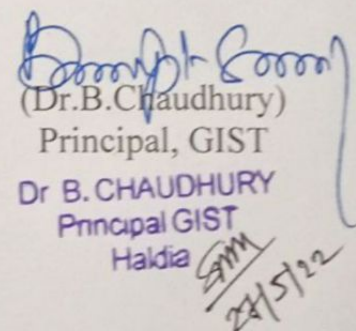 (Dr.B.Chaudhury)
Principal, GIST
Dr B. CHAUDHURY
Principal GIST
Haldia
27/5/22